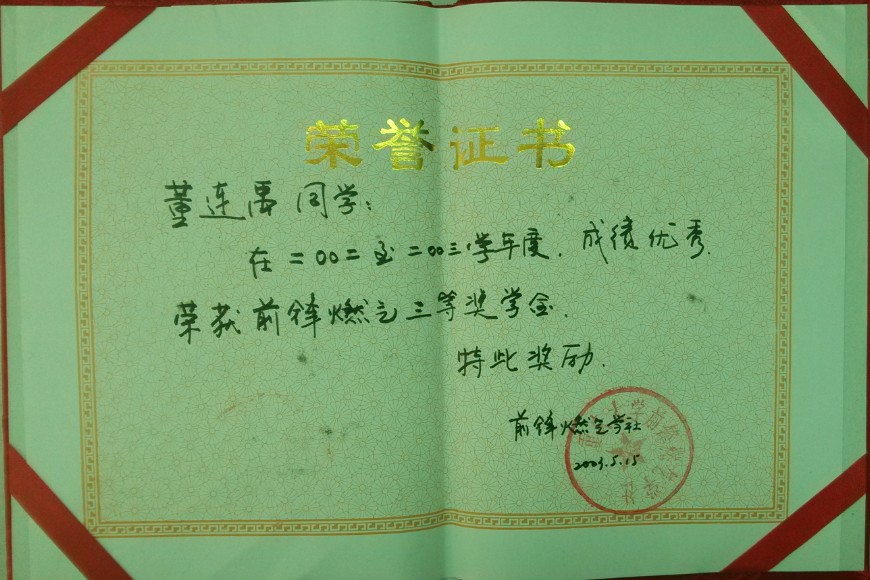 荣誉证书
董连禹 同学：
在二〇〇二至二〇〇三学年度，成绩优秀，
荣获前锋燃气三等奖学金，
特此奖励。
前锋燃气学社
2003.5.15